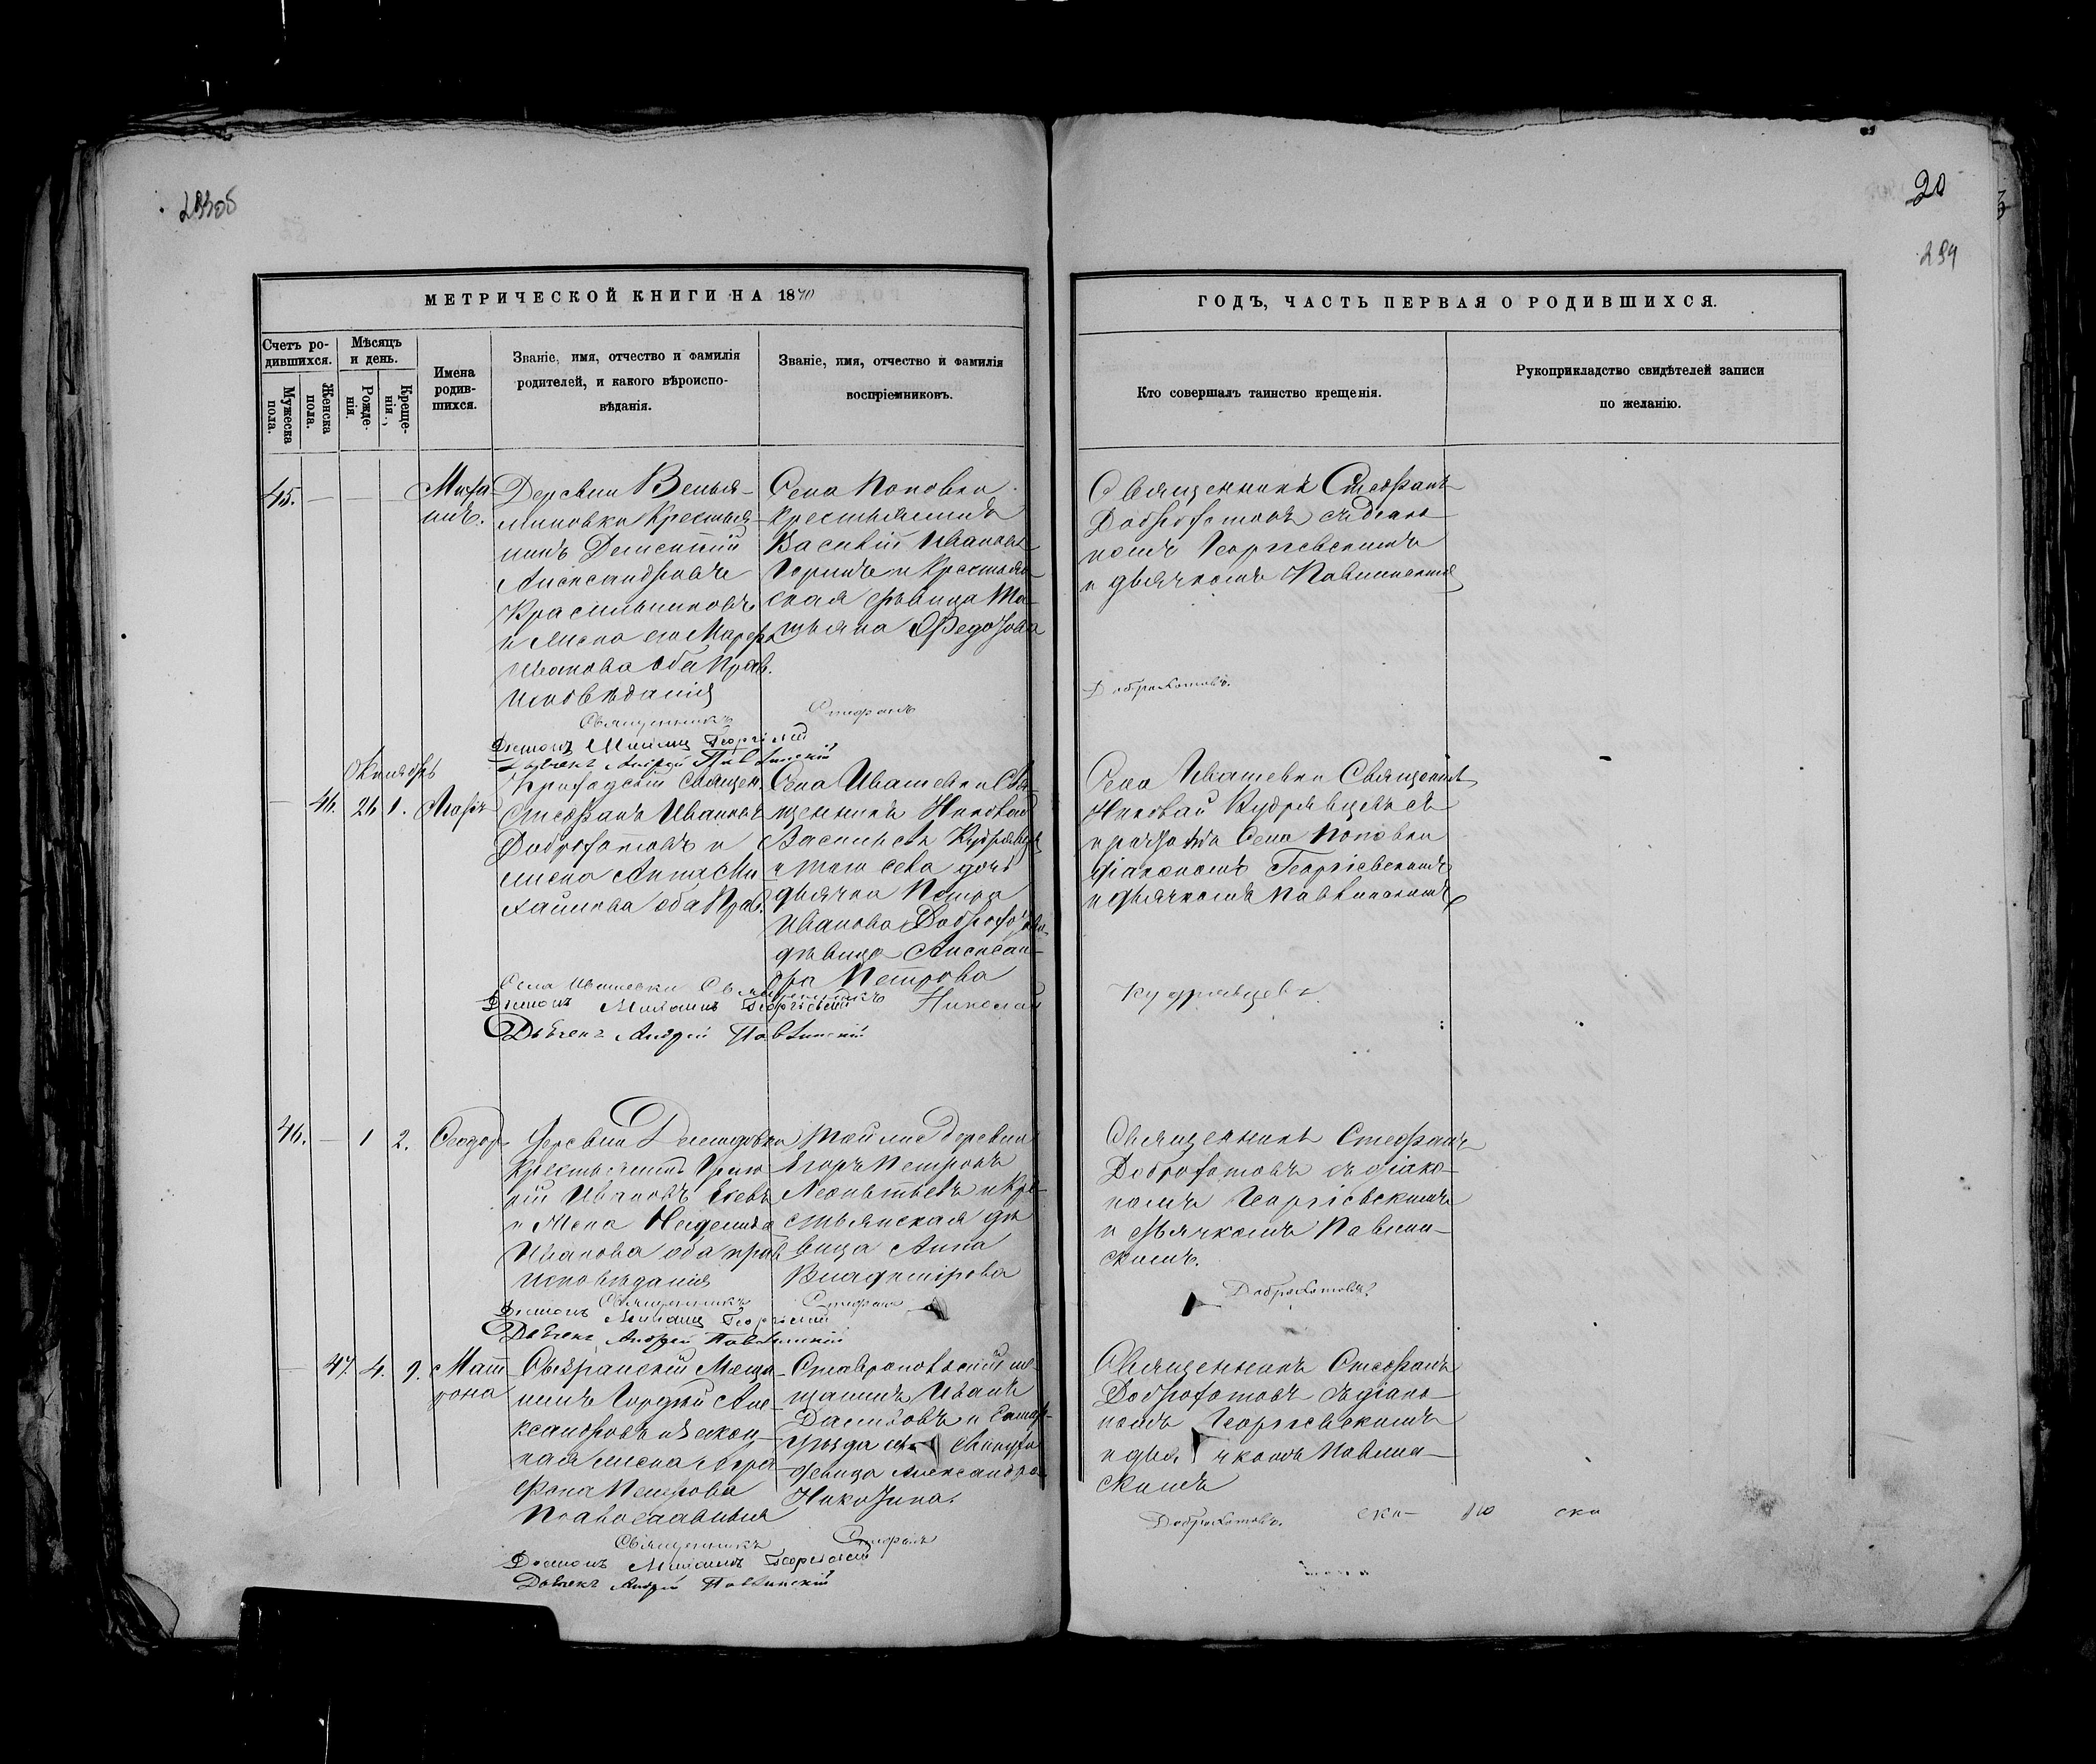 20
294
МЕТРИЧЕСКОЙ КНИГИ НА 1870
ГОДЪ, ЧАСТЬ ПЕРВАЯ О РОДИВШИХСЯ.
Счетъ ро-
дившихся.
Мужеска
пола.
Женска
пола.
Мѣсяцъ
и день.
Рожде-
нія.
Креще-
нія.
Имена
родив-
шихся.
Званіе, имя, отчество и фамилія
родителей, и какого вѣроиспо-
вѣданія.
Званіе, имя, отчество и фамилія
воспріемниковъ.
Кто совершалъ таинство крещенія.
Рукоприкладство свидѣтелей записи
по желанію.
45.
Миха
илъ.
Деревни Венья-
миновки Крестья-
нинъ
Александровъ
Красильниковъ
и жена его Марфа
Иванова оба прав.
исповѣданія
Села Поповки
крестьянинъ
Василій Ивановъ
и крестьян
ская дѣвица Та-
тьяна Ѳедотова
Священникъ Стефанъ
Доброхотовъ съ діако-
номъ Георгіевскимъ
и дьячкомъ Павлинскимъ
Священникъ Стефанъ
Доброхотовъ.
Діаконъ Михаилъ Георгіевскій
Дьячекъ Андрей Павлинскій
Октябрь
46. 26 1.
Приходскій Священ.
Стефанъ Ивановъ
Доброхотовъ и
жена Анна Ми
хайлова оба Прав.
Села Ивашевки Свя-
щенникъ Николай
Васильевъ Кудрявцевъ
и того села дочь
дьячка Петра
Иванова
дѣвица Алексан-
дра Петрова
Села Ивашевки Священникъ
Николай Кудрявцевъ съ
причтомъ Села Поповки
діакономъ Георгіевскимъ
и дьячкомъ Павлинскимъ
Села Ивашевки Священникъ Николай
Кудрявцевъ.
Діаконъ Михаилъ Георгіевскій
Дьячекъ Андрей Павлинскій
46. 1 2. Ѳеодоръ
деревни Демидовки
Крестьянинъ Григо
рій Ивановъ
и жена Надежда
Иванова оба прав
исповѣданія
той же деревни
Егоръ Петровъ
Леонтьевъ и кре-
стьянская дѣ
вица Анна
Владимірова
Священникъ Стефанъ
Доброхотовъ съ діако-
номъ Георгіевскимъ
и дьячкомъ Павлин-
скимъ.
Священникъ Стефанъ
Доброхотовъ
Діаконъ Михаилъ Георгіевскій
Дьячекъ Андрей Павлинскій
47. 4. 9. Мат
рона
Сызранскій Мѣща-
нинъ Гордѣй Але-
ксандровъ и закон-
ная жена Агра
фена Петрова
Православныя
Ставропольскій мѣ-
щанинъ Иванъ
Даниловъ и Самар-
дѣвица Александра
Николина.
Священникъ Стефанъ
Доброхотовъ съ діако-
номъ Георгіевскимъ
и дьячкомъ Павлин-
скимъ
Священникъ Стефанъ
Доброхотовъ.
Діаконъ Михаилъ Георгіевскій
Дьячекъ Андрей Павлинскій